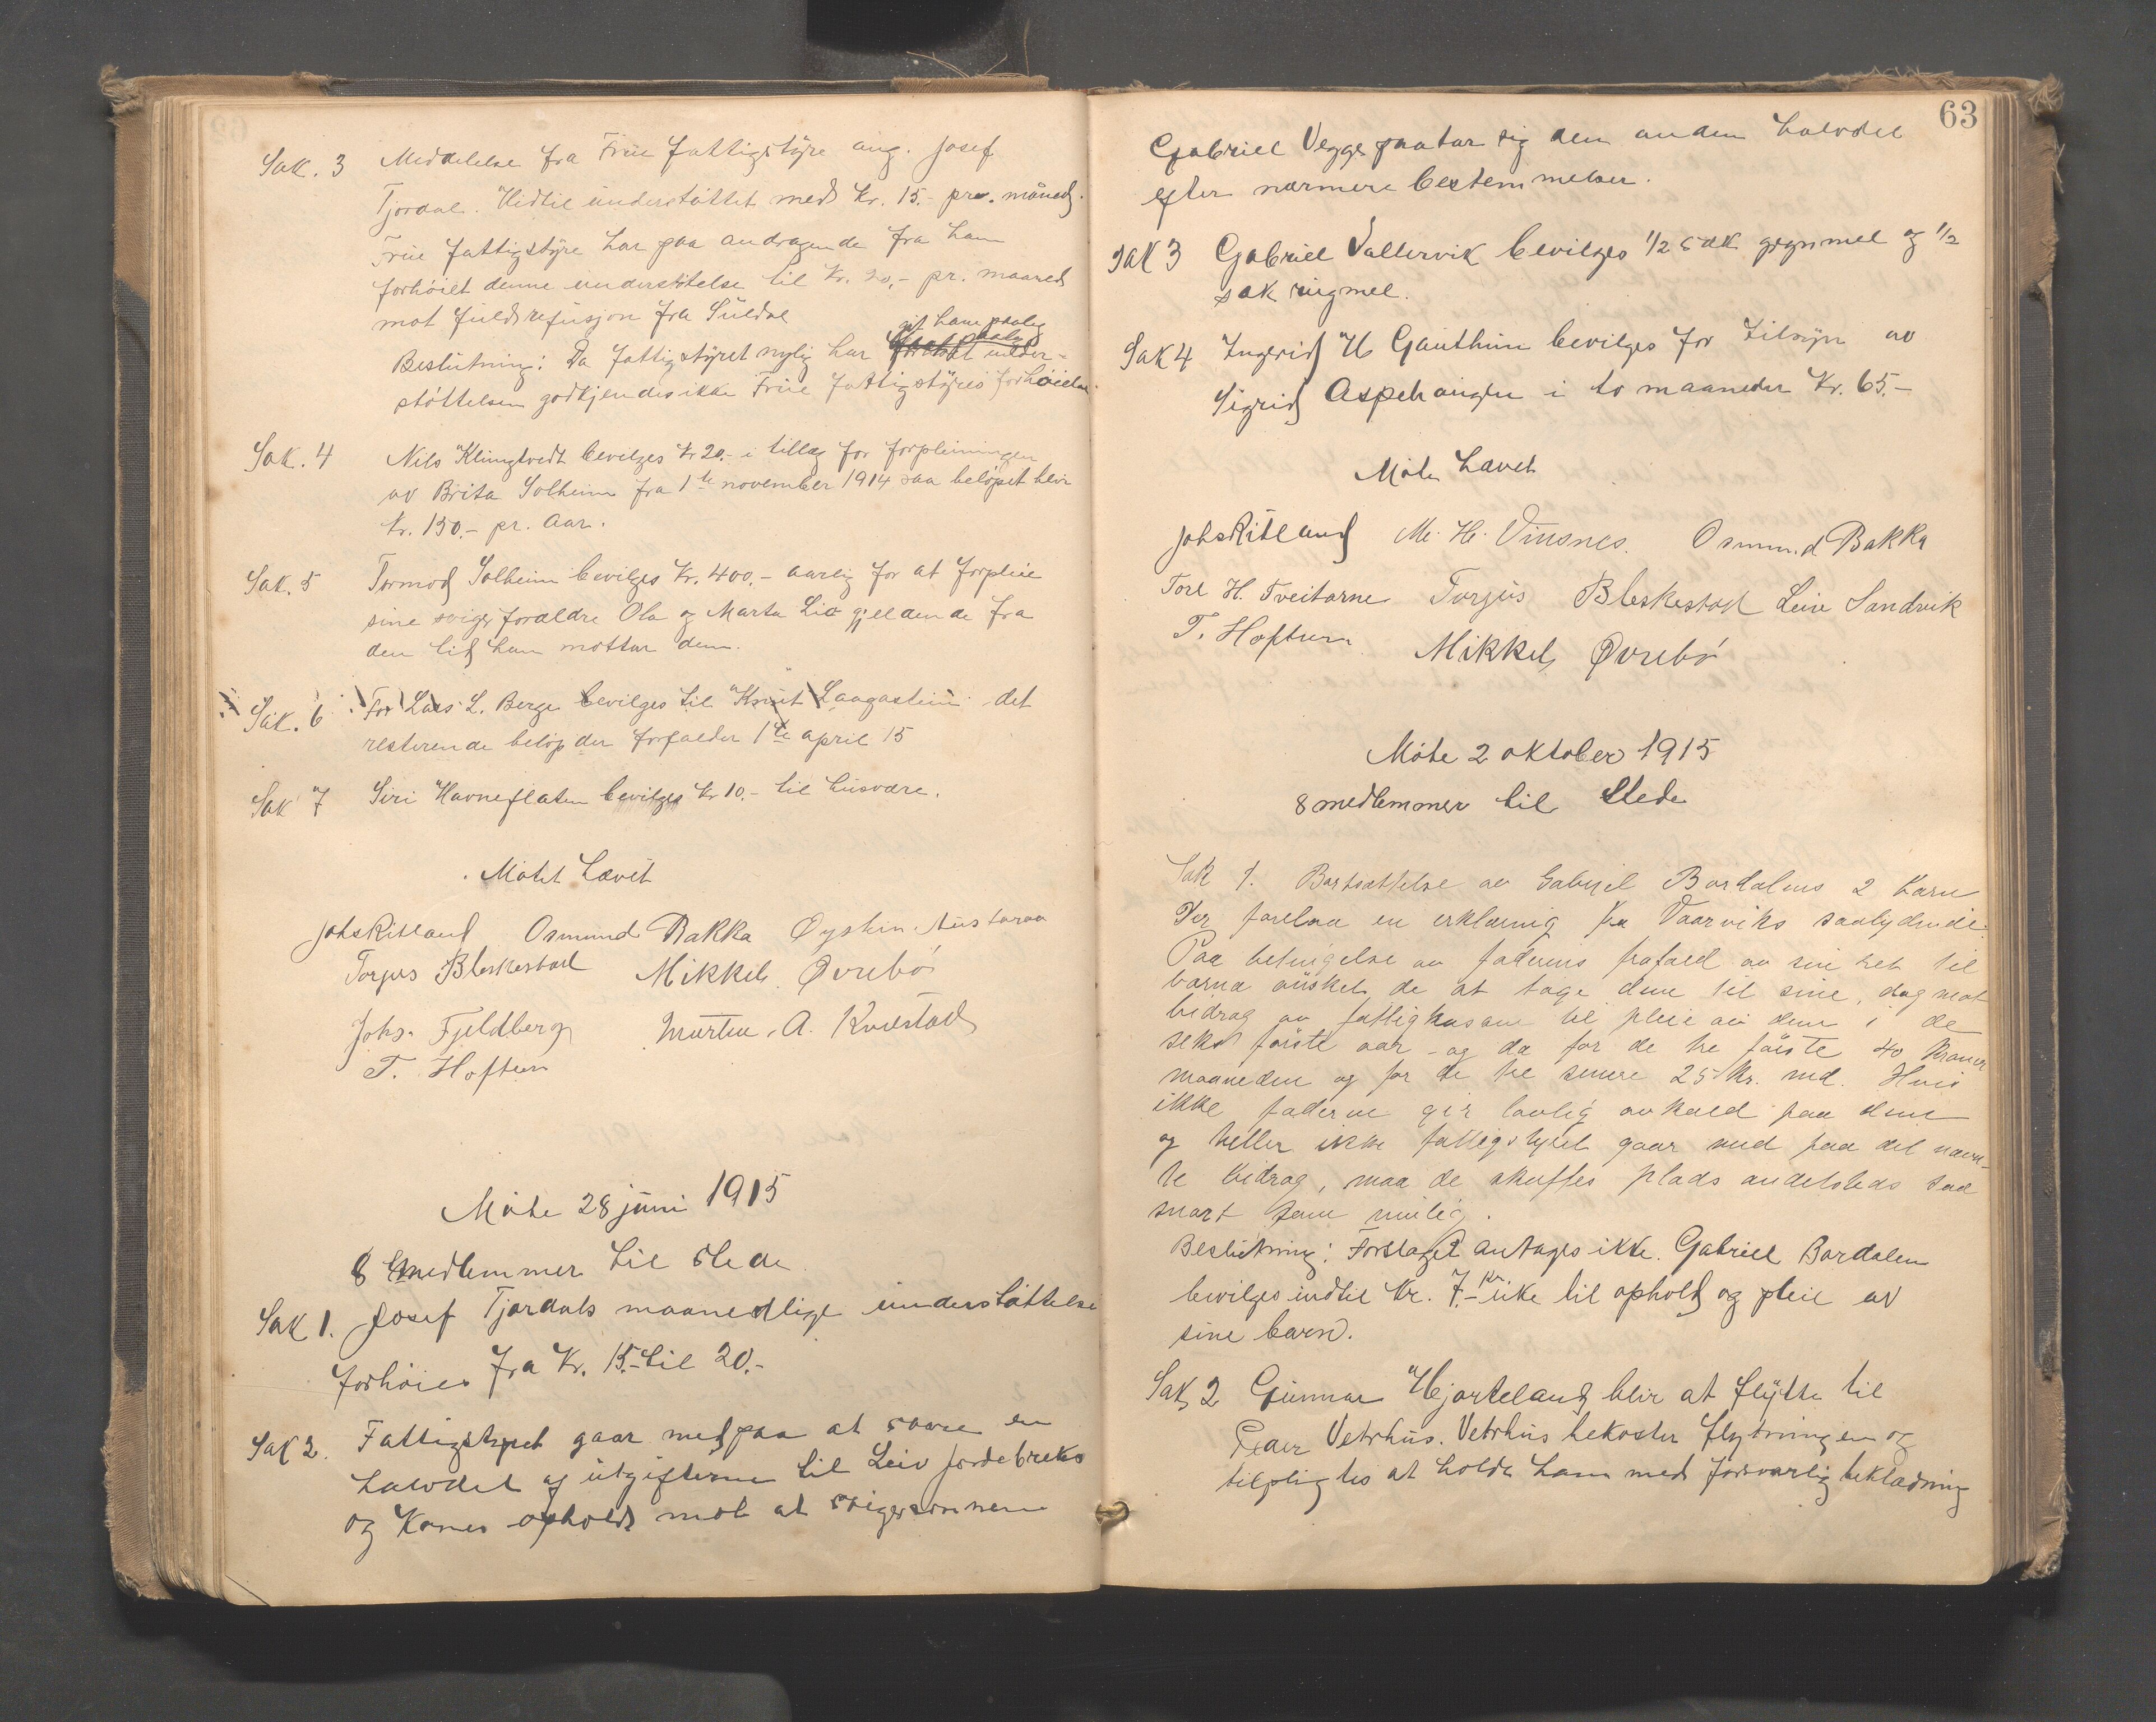 Sak. 3 Meddelelse fra Friie fattigstyre ang. Josef
Tjordal. Hidtil understøttet med Kr. 15.- pr. måned.
Friie fattigstyre har paa andragende fra ham
forhöiet denne understötelse til Kr. 20,- pr. maaned
mot fuld refusjon fra Suldal
git ham paalig
Beslutning: Da fattigstyret nylig har under-
støttelsen godkjendes ikke Friie fattigstyres forhöielse.
Sak. 4 Nils Klungtvedt bevilges Kr 20.- i tillæg for forpleiningen
av Brita Solheim fra 1te november 1914 saa belöpet blir
Kr. 150.- pr. Aar.
Sak. 5 Tormod Solheim bevilges Kr. 400.- aarlig for at forpleie
sine svigerforældre Ola og Marta Lio gjeldende fra
den tid han mottar dem.
Sak. 6 For Lars L. Berge bevilges til Knut Laagastein det
resterende belöp der forfalder 1te april 15
Sak 7 Siri Havneflaten bevilges Kr 10.- til husvære.
Mötet hævet
Johs Ritland Osmund Bakka Øystein Austaraa
Torjus Bleskestad Mikkel Øvrebö
Johs. Fjeldberg Murten A. Kvæstad
T. Hoftun
Möte 28 juni 1915
8 medlemmer til stede
Sak 1. Josef Tjordals maanedlige understöttelse
forhöies fra Kr. 15.- til 20.-
Sak 2. Fattigstyret gaar med paa at svare en
halvdel af utgifterne til Leiv Jordebreks
og Kones ophold mot at svigersönnen
63
Gabriel Vegge paatar sig den anden halvdel
efter nærmere bestemmelser.
Sak 3 Gabriel Vallervik bevilges 1/2 sæk grynmel og 1/2
sæk rugmel.
Sak 4 Ingerid H Gauthun bevilges for tilsyn av
Sigrid Aspehaugen i to maaneder Kr. 65.-
Möte hævet
Johs Ritland M. H. Vinsnes. Osmund Bakka
Torl H. Tveitarne Torjus Bleskestad Leive Sandvik
T. Hoftun Mikkel Øvrebö
Möte 2 oktober 1915
8 medlemmer til Stede
Sak 1. Bortsættelse av Gabriel Bordalens 2 barn
Der forelaa en erklæring fra Vaarviks saalydende:
Paa betingelse av faderens frafald av sin ret til
barna önsker de at tage dem til sine, dog mot
bidrag av fattigkasserne til pleie av dem i de
seks förste aar - og da for de tre förste 40 kroner
maaneden og for de tre senere 25 kr. md. Hvis
ikke faderne gir lovlig avkald paa dem
og heller ikke fattigstyret gaar med paa det nævn-
te bidrag, maa de skaffes plads andetsteds saa
snart som mulig.
Beslutning: Forslaget antages ikke. Gabriel Bordalen
bevilges indtil Kr. 7.- pr. uke til ophold og pleie av
sine barn.
Sak 2 Gunnar Hjorteland blir at flytte til
Peder Vetrhus. Vetrhus bekoster flytningen og
tilpligtes at holde ham med forsvarlig beklædning